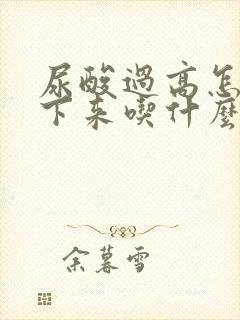 尿酸過高怎
下来喫什麼
余暮雪